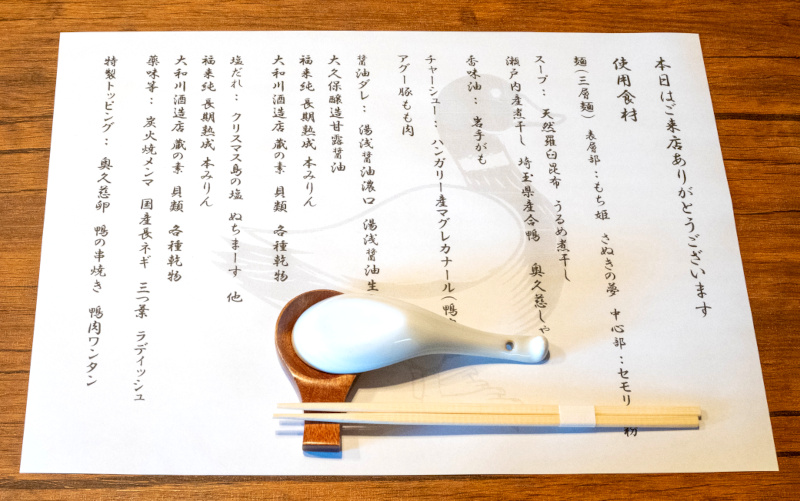 本日はご来店ありがとうございます
使用食材
麺(三層麺) 表層部:もち姫 さぬきの夢 中心部:セモリ 粉
スープ: 天然羅臼昆布 うるめ煮干し
瀬戸内産煮干し 埼玉県産合鴨 奥久慈しゃ
香味油: 岩手がも
チャーシュー: ハンガリー産マグレカナール(鴨
アグー豚もも肉
醤油ダレ: 湯浅醤油濃口 湯浅醤油生
大久保醸造甘露醤油
福来純 長期熟成 本みりん
大和川酒造店 蔵の素 貝類 各種乾物
塩だれ: クリスマス島の塩 ぬちまーす 他
福来純 長期熟成 本みりん
大和川酒造店 蔵の素 貝類 各種乾物
薬味等: 炭火焼メンマ 国産長ネギ 三つ葉 ラディッシュ
特製トッピング: 奥久慈卵 鴨の串焼き 鴨肉ワンタン